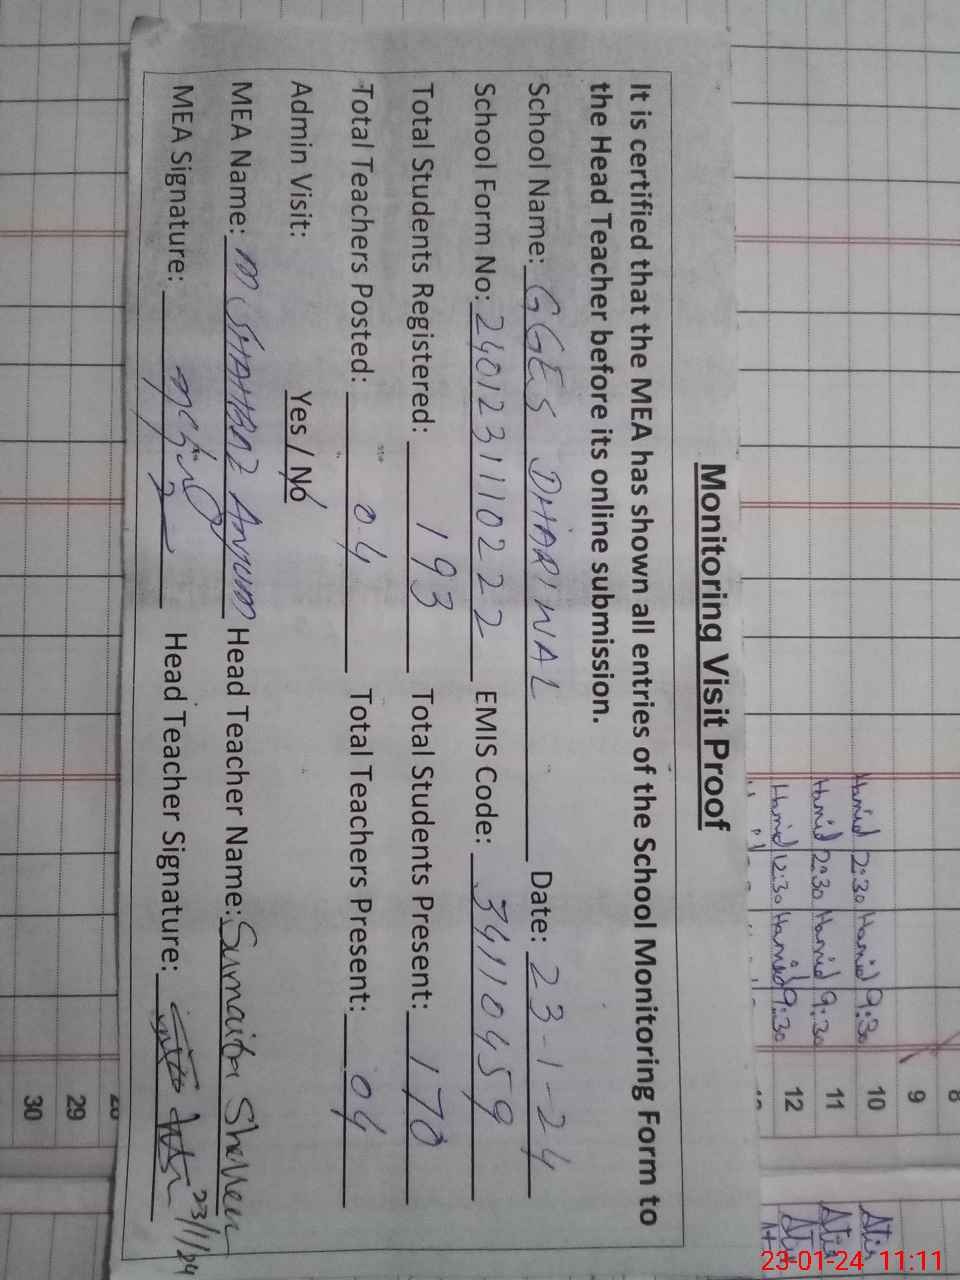 Monitoring Visit Proof
It is certified that the MEA has shown all entries of the School Monitoring Form to
the Head Teacher before its online submission.
School Name: GGES DHARWAL Date: 23-1-24
School Form No: 24012311022 EMIS Code: 34110459
Total Students Registered: 193 Total Students Present: 170
Total Teachers Posted: 04 Total Teachers Present: 04
Admin Visit: Yes / No
MEA Name: M SHAHBAZ Anjum Head Teacher Name: Sumaira Shaheen
MEA Signature: Head Teacher Signature: 23/1/24
8
9
Hamid 2:30 Hamid 9:30 10
Hamid 2:30 Hamid 9:30 11
Hamid 12:30 Hamid 9:30 12
29
30
23-01-24 11:11